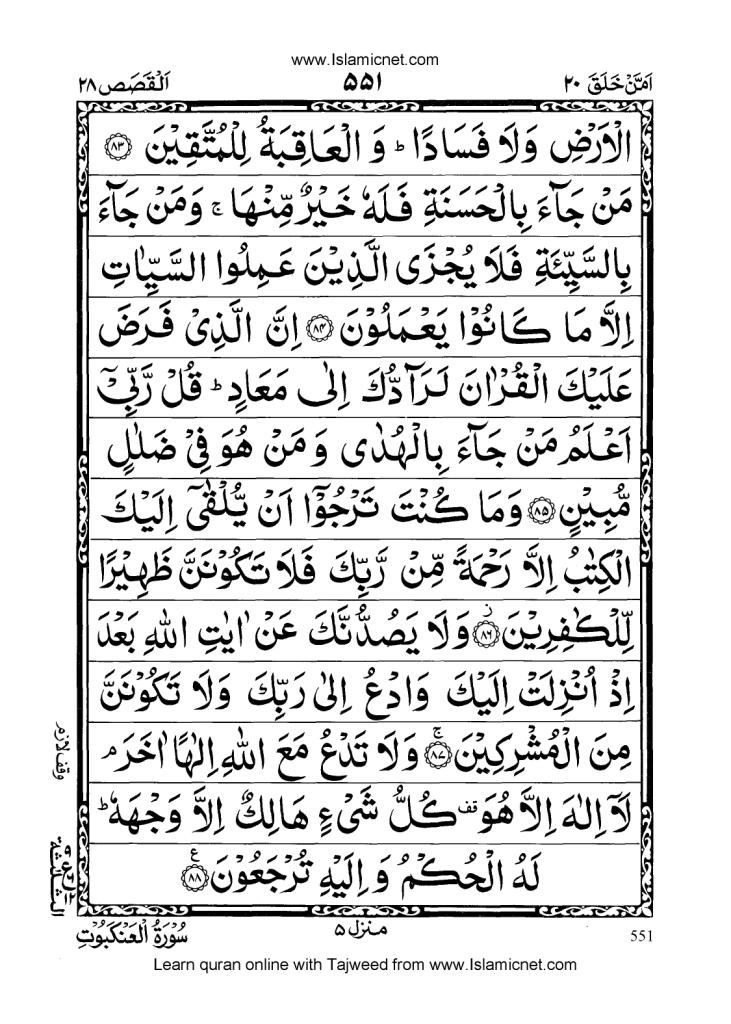 www.Islamicnet.com
اَمَّنْ خَلَقَ ٢٠
۵۵۱
اَلْقَصَص ٢٨
الْاَرْضِ وَلَا فَسَادًا ؕ وَ الْعَاقِبَةُ لِلْمُتَّقِيْنَ ﴿۸۳﴾
مَنْ جَآءَ بِالْحَسَنَةِ فَلَهٗ خَيْرٌ مِّنْهَا ۚ وَمَنْ جَآءَ
بِالسَّيِّئَةِ فَلَا يُجْزَى الَّذِيْنَ عَمِلُوا السَّيِّاٰتِ
اِلَّا مَا كَانُوْا يَعْمَلُوْنَ ﴿۸۴﴾ اِنَّ الَّذِيْ فَرَضَ
عَلَيْكَ الْقُرْاٰنَ لَرَآدُّكَ اِلٰى مَعَادٍ ؕ قُلْ رَّبِّيْۤ
اَعْلَمُ مَنْ جَآءَ بِالْهُدٰى وَ مَنْ هُوَ فِيْ ضَلٰلٍ
مُّبِيْنٍ ﴿۸۵﴾ وَمَا كُنْتَ تَرْجُوْۤا اَنْ يُّلْقٰۤى اِلَيْكَ
الْكِتٰبُ اِلَّا رَحْمَةً مِّنْ رَّبِّكَ فَلَا تَكُوْنَنَّ ظَهِيْرًا
لِّلْكٰفِرِيْنَ ؗ﴿۸۶﴾ وَلَا يَصُدُّنَّكَ عَنْ اٰيٰتِ اللّٰهِ بَعْدَ
اِذْ اُنْزِلَتْ اِلَيْكَ وَادْعُ اِلٰى رَبِّكَ وَلَا تَكُوْنَنَّ
مِنَ الْمُشْرِكِيْنَ ۚ﴿۸۷﴾ وَلَا تَدْعُ مَعَ اللّٰهِ اِلٰهًا اٰخَرَ ۘ
وقف لازم
لَاۤ اِلٰهَ اِلَّا هُوَ قف كُلُّ شَيْءٍ هَالِكٌ اِلَّا وَجْهَهٗ ؕ
لَهُ الْحُكْمُ وَ اِلَيْهِ تُرْجَعُوْنَ ﴿۸۸﴾ ع
الثلاثة
سُوْرَةُ الْعَنْكَبُوْتِ
منزل ۵
551
Learn quran online with Tajweed from www.Islamicnet.com